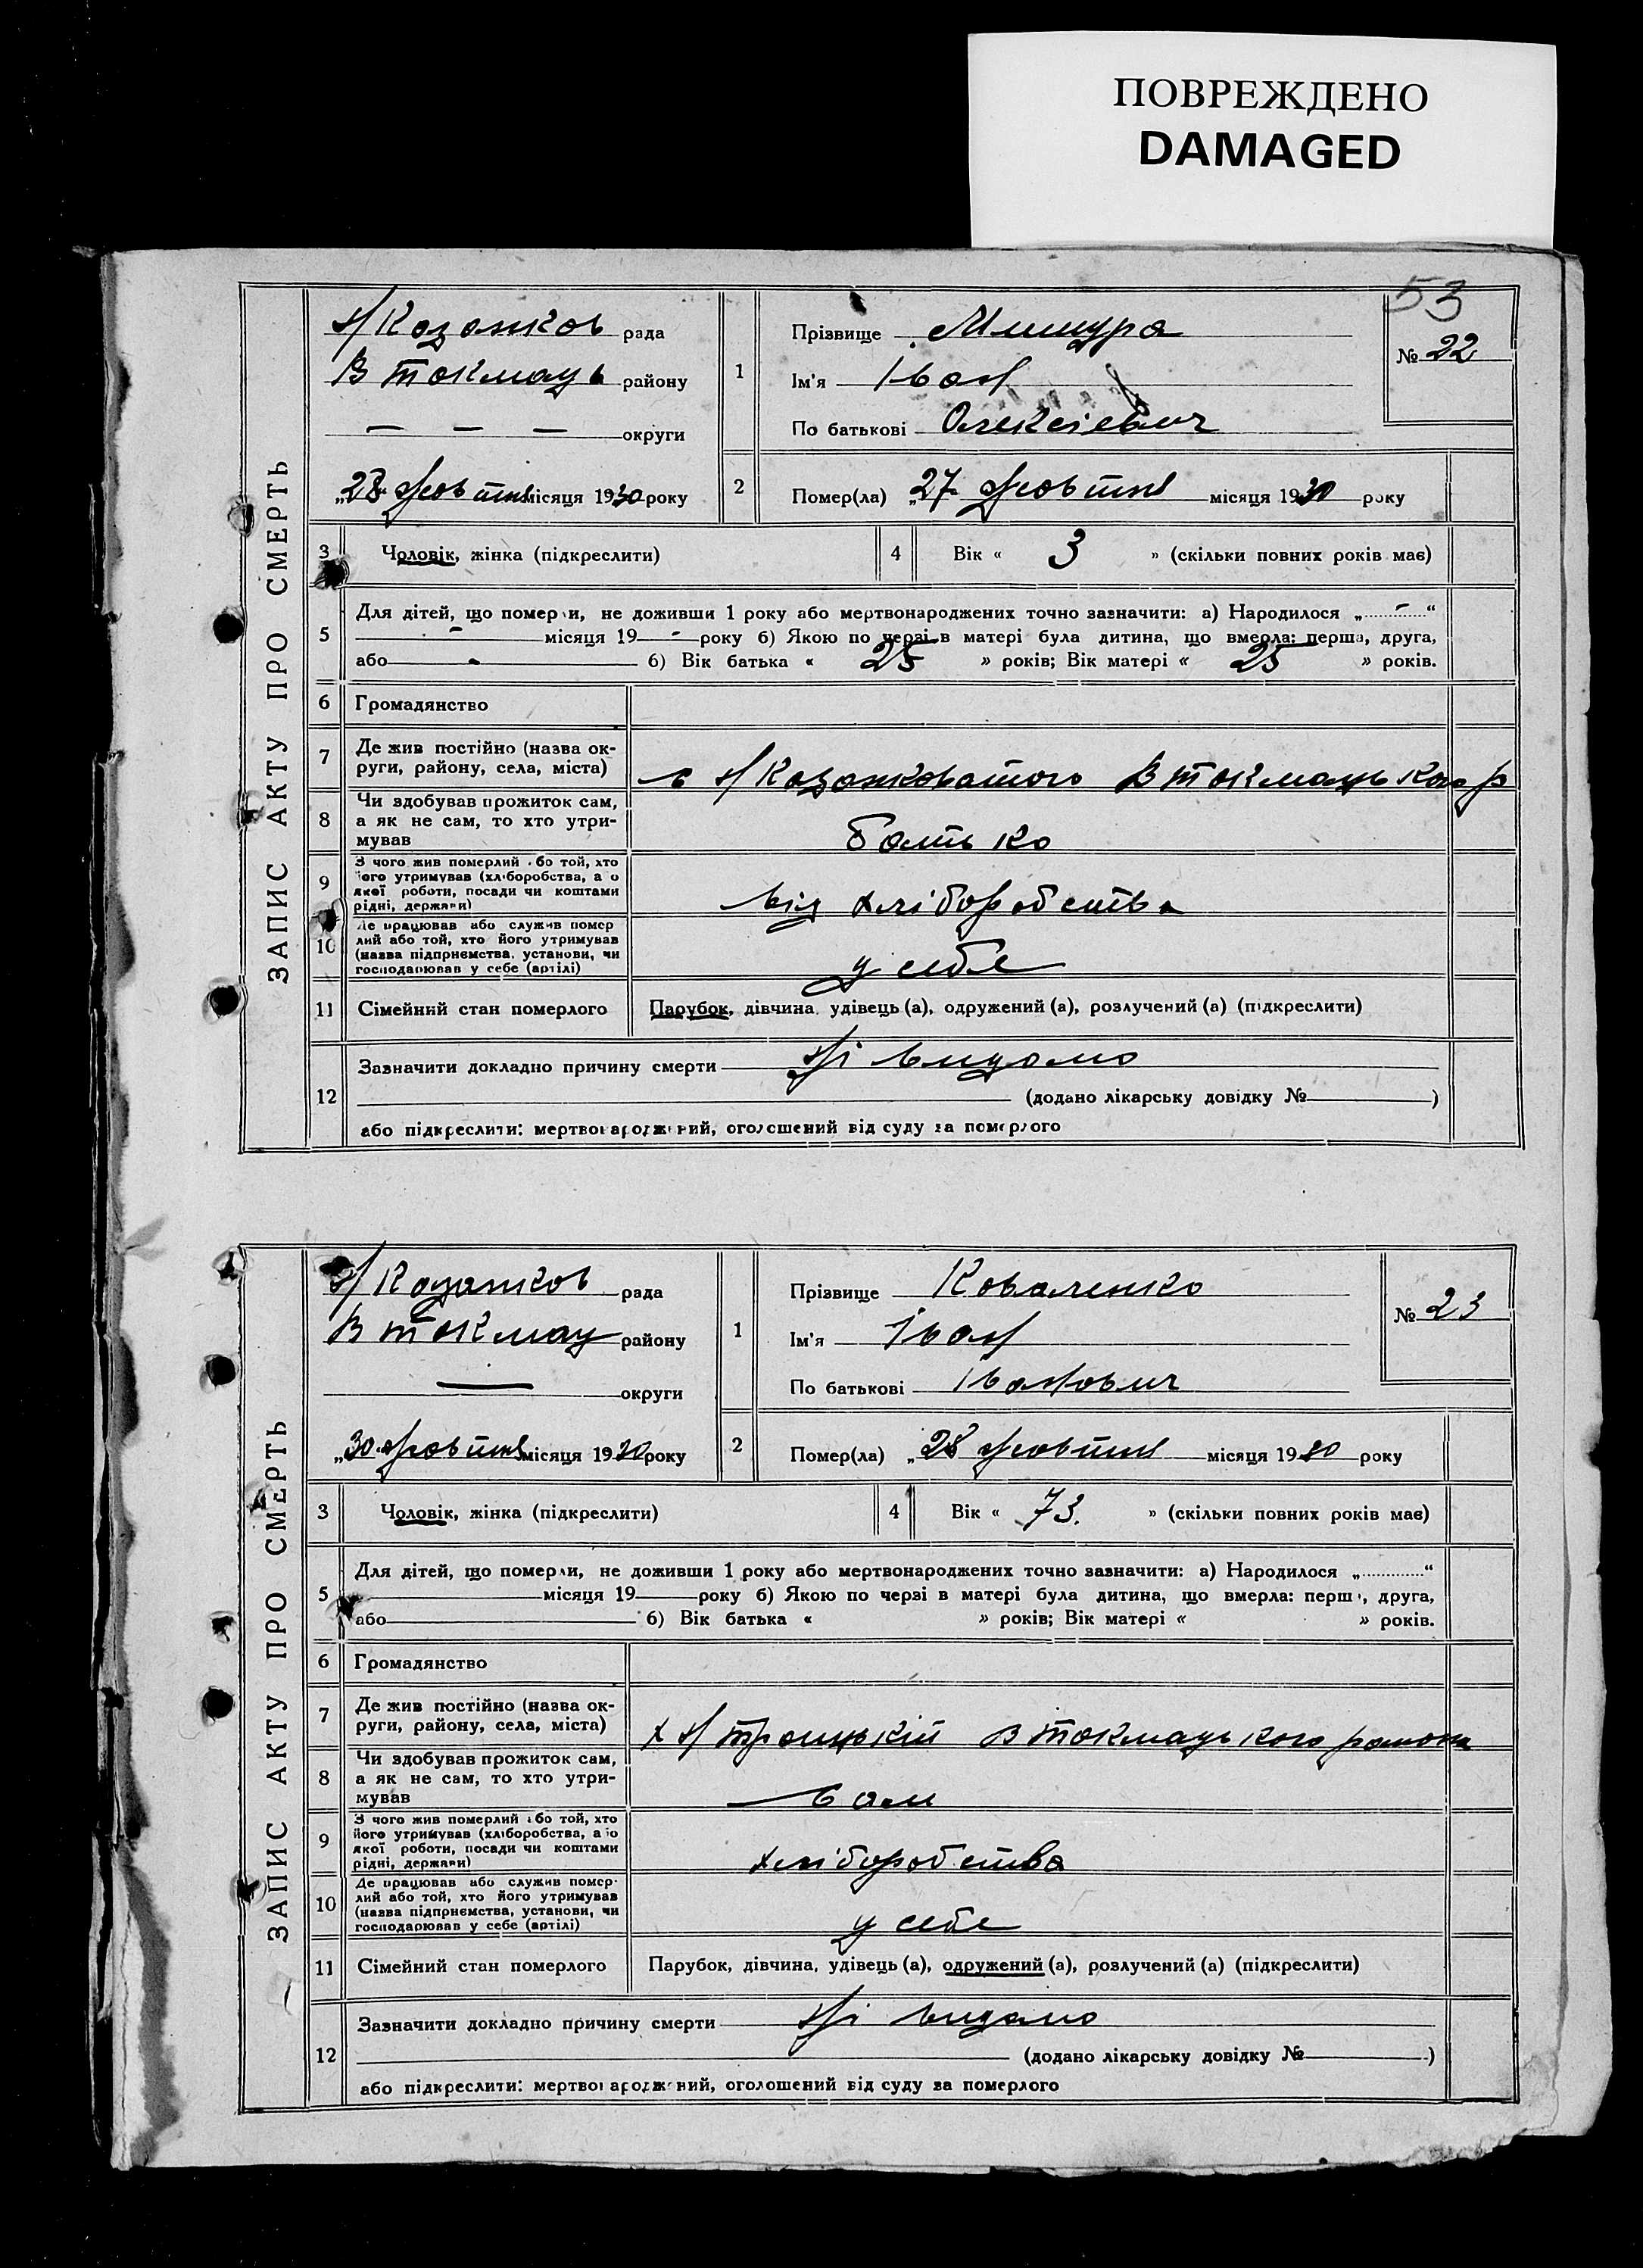 ПОВРЕЖДЕНО
DAMAGED
53
ЗАПИС АКТУ ПРО СМЕРТЬ
Н/Козанков рада
В Токмаць району
— — — округи
„28 жовтня місяця 1930 року
1
Прізвище Мишура
Ім'я Іван
По батькові Олексієвич
№ 22
2
Помер(ла) „27 жовтня місяця 1930 року
3 Чоловік, жінка (підкреслити)
4 Вік « 3 » (скільки повних років має)
5 Для дітей, що померли, не доживши 1 року або мертвонароджених точно зазначити: а) Народилося „ - “
- місяця 19 - року б) Якою по черзі в матері була дитина, що вмерла: перша, друга,
або - 6) Вік батька « 25 » років; Вік матері « 25 » років.
6 Громадянство
7 Де жив постійно (назва ок-
руги, району, села, міста)
с Н/Козанковатого В Токмацького р
8 Чи здобував прожиток сам,
а як не сам, то хто утри-
мував
батько
9 З чого жив померлий або той, хто
його утримував (хліборобства, або
якої роботи, посади чи коштами
рідні, держави)
від хліборобства
10 Де працював або служив помер
лий або той, хто його утримував
(назва підприємства, установи, чи
господарював у себе (артілі)
у себе
11 Сімейний стан померлого
Парубок, дівчина, удівець (а), одружений (а), розлучений (а) (підкреслити)
12 Зазначити докладно причину смерти Ні видомо
(додано лікарську довідку № )
або підкреслити: мертвонароджений, оголошений від суду за померлого
ЗАПИС АКТУ ПРО СМЕРТЬ
Н/Козанков рада
В Токмац району
— округи
„30 жовтня місяця 1930 року
1
Прізвище Коваленко
Ім'я Іван
По батькові Іванович
№ 23
2
Помер(ла) „28 жовтня місяця 1930 року
3 Чоловік, жінка (підкреслити)
4 Вік « 73. » (скільки повних років має)
5 Для дітей, що померли, не доживши 1 року або мертвонароджених точно зазначити: а) Народилося „ “
місяця 19 року б) Якою по черзі в матері була дитина, що вмерла: перша, друга,
або 6) Вік батька « » років; Вік матері « » років.
6 Громадянство
7 Де жив постійно (назва ок-
руги, району, села, міста)
х Н/Троицькій В Токмацького району
8 Чи здобував прожиток сам,
а як не сам, то хто утри-
мував
сам
9 З чого жив померлий або той, хто
його утримував (хліборобства, або
якої роботи, посади чи коштами
рідні, держави)
хліборобства
10 Де працював або служив помер-
лий або той, хто його утримував
(назва підприємства, установи, чи
господарював у себе (артілі)
у себе
11 Сімейний стан померлого
Парубок, дівчина, удівець (а), одружений (а), розлучений (а) (підкреслити)
12 Зазначити докладно причину смерти Ні видомо
(додано лікарську довідку № )
або підкреслити: мертвонароджений, оголошений від суду за померлого